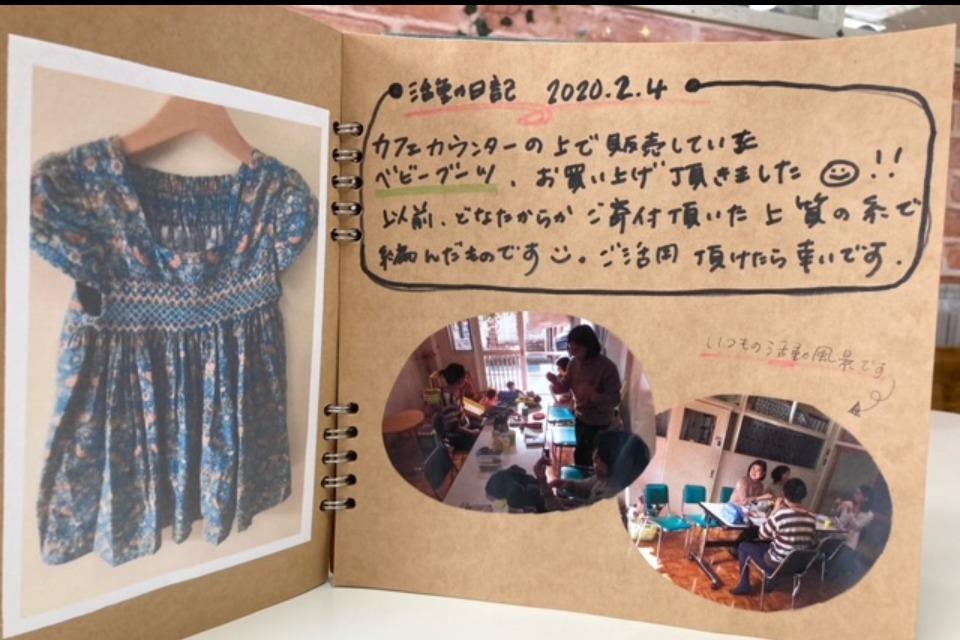 活動日記 2020.2.4
カフェカウンターの上で販売していた
ベビーブーツ、お買い上げ頂きました ☺!!
以前、どなたからかご寄付頂いた上質の糸で
編んだものです☺。ご活用頂けたら幸いです.
いつもの活動風景です